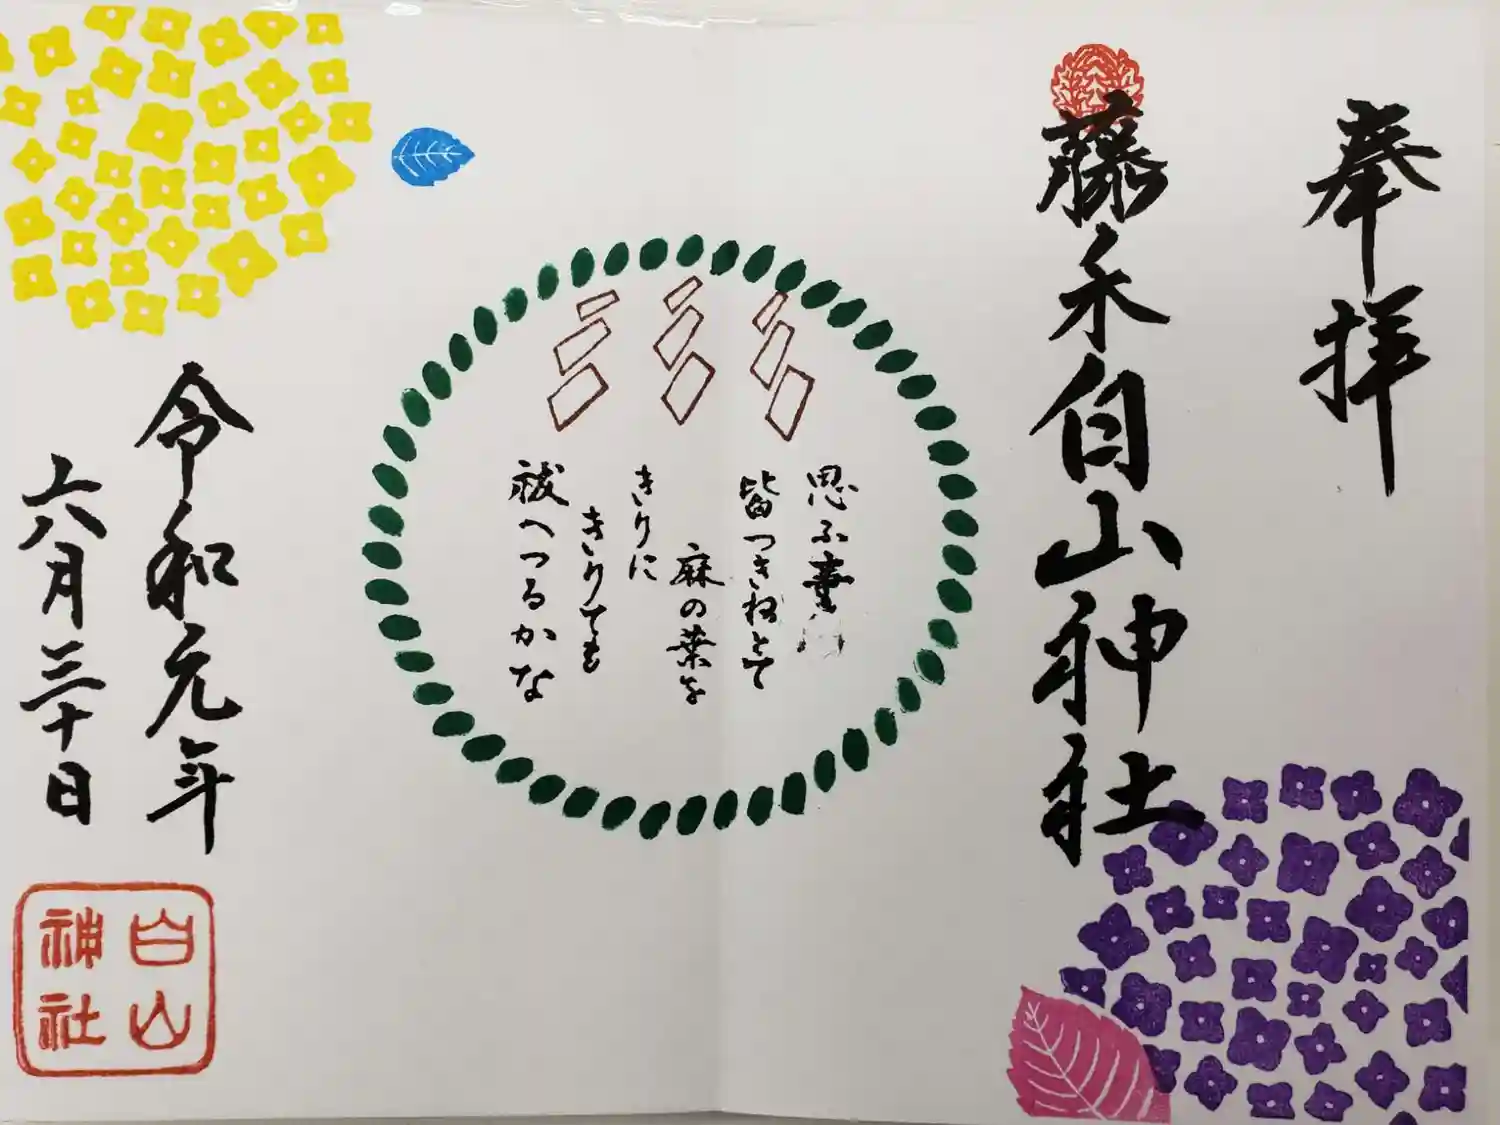 奉拝
藤ノ木白山神社
思ふ事
皆つきねとて
麻の葉を
きりに
きりても
祓へつるかな
令和元年
六月三十日
白山
神社